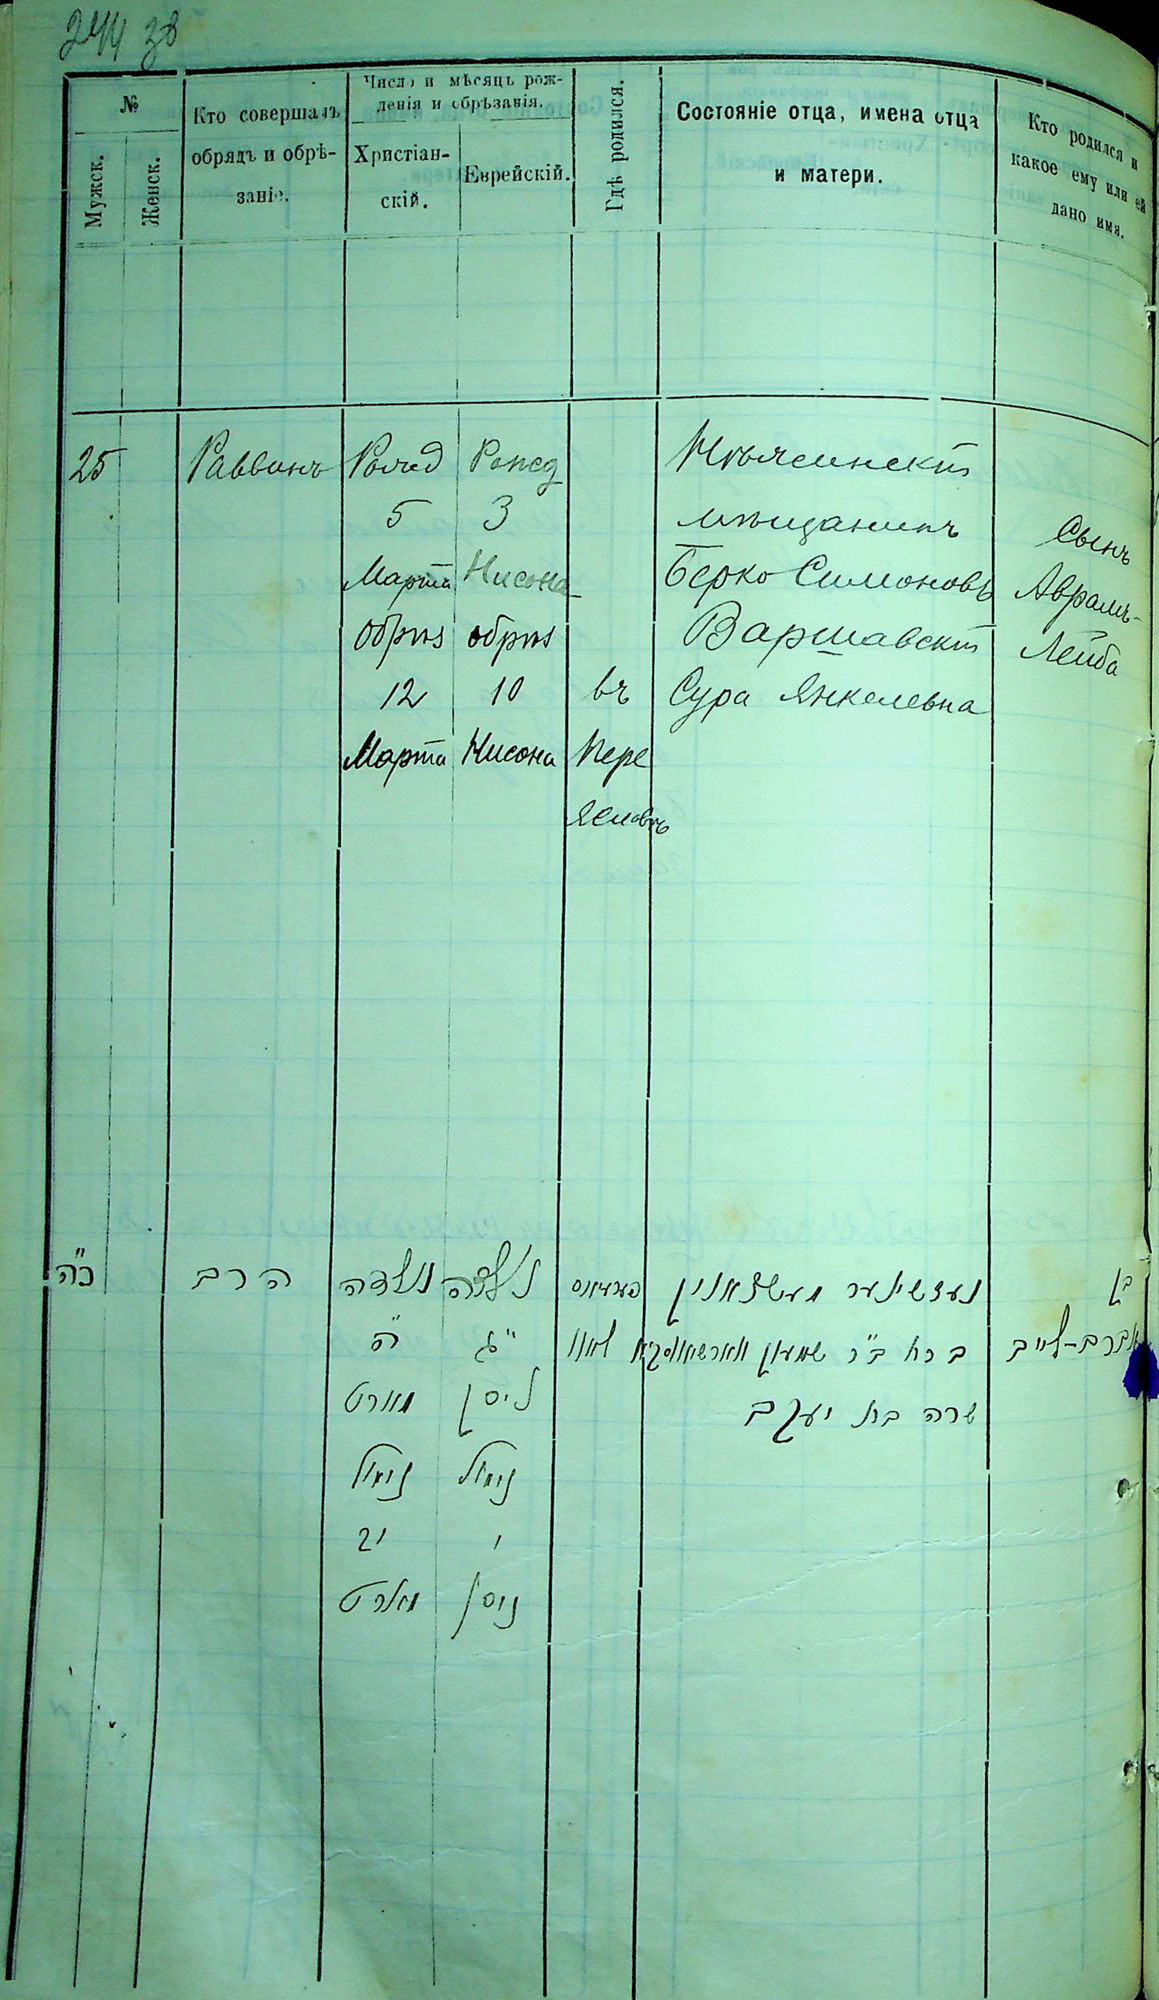 244 зв
№
Мужск.
Женск.
Кто совершалъ
обрядъ и обрѣ-
заніе.
Число и мѣсяцъ рож-
денія и обрѣзанія.
Христіан-
скій.
Еврейскій.
Гдѣ родился.
Состояніе отца, имена отца
и матери.
Кто родился и
какое ему или ей
дано имя.
25
Раввинъ
Рожд
5
Марта
обрѣз
12
Марта
Рожд
3
Нисона
обрѣз
10
Нисона
въ
Пере
яславѣ
мѣщанинъ
Берко Симоновъ
Варшавскій
Сура Янкелевна
Сынъ
Аврамъ-
Лейба
כ"ה
הרב
נולדה
ה"
מארט
נימול
יב
מארט
נולדה
ג"
ניסן
נימול
י
ניסן
מעשצאנין
ב"ר שמעון ווארשאווסקיא
שרה בת יעקב
בן
אברם-לייב